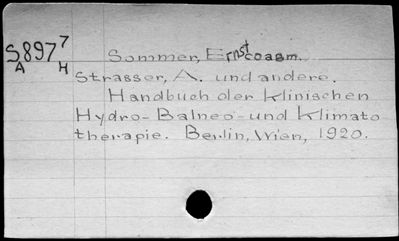 S897⁷ Sommer, Ernst coaam.
A H
Strasser, A. und andere.
Handbuch der klinischen
Hydro- Balneo- und Klimato
therapie. Berlin, Wien, 1920.